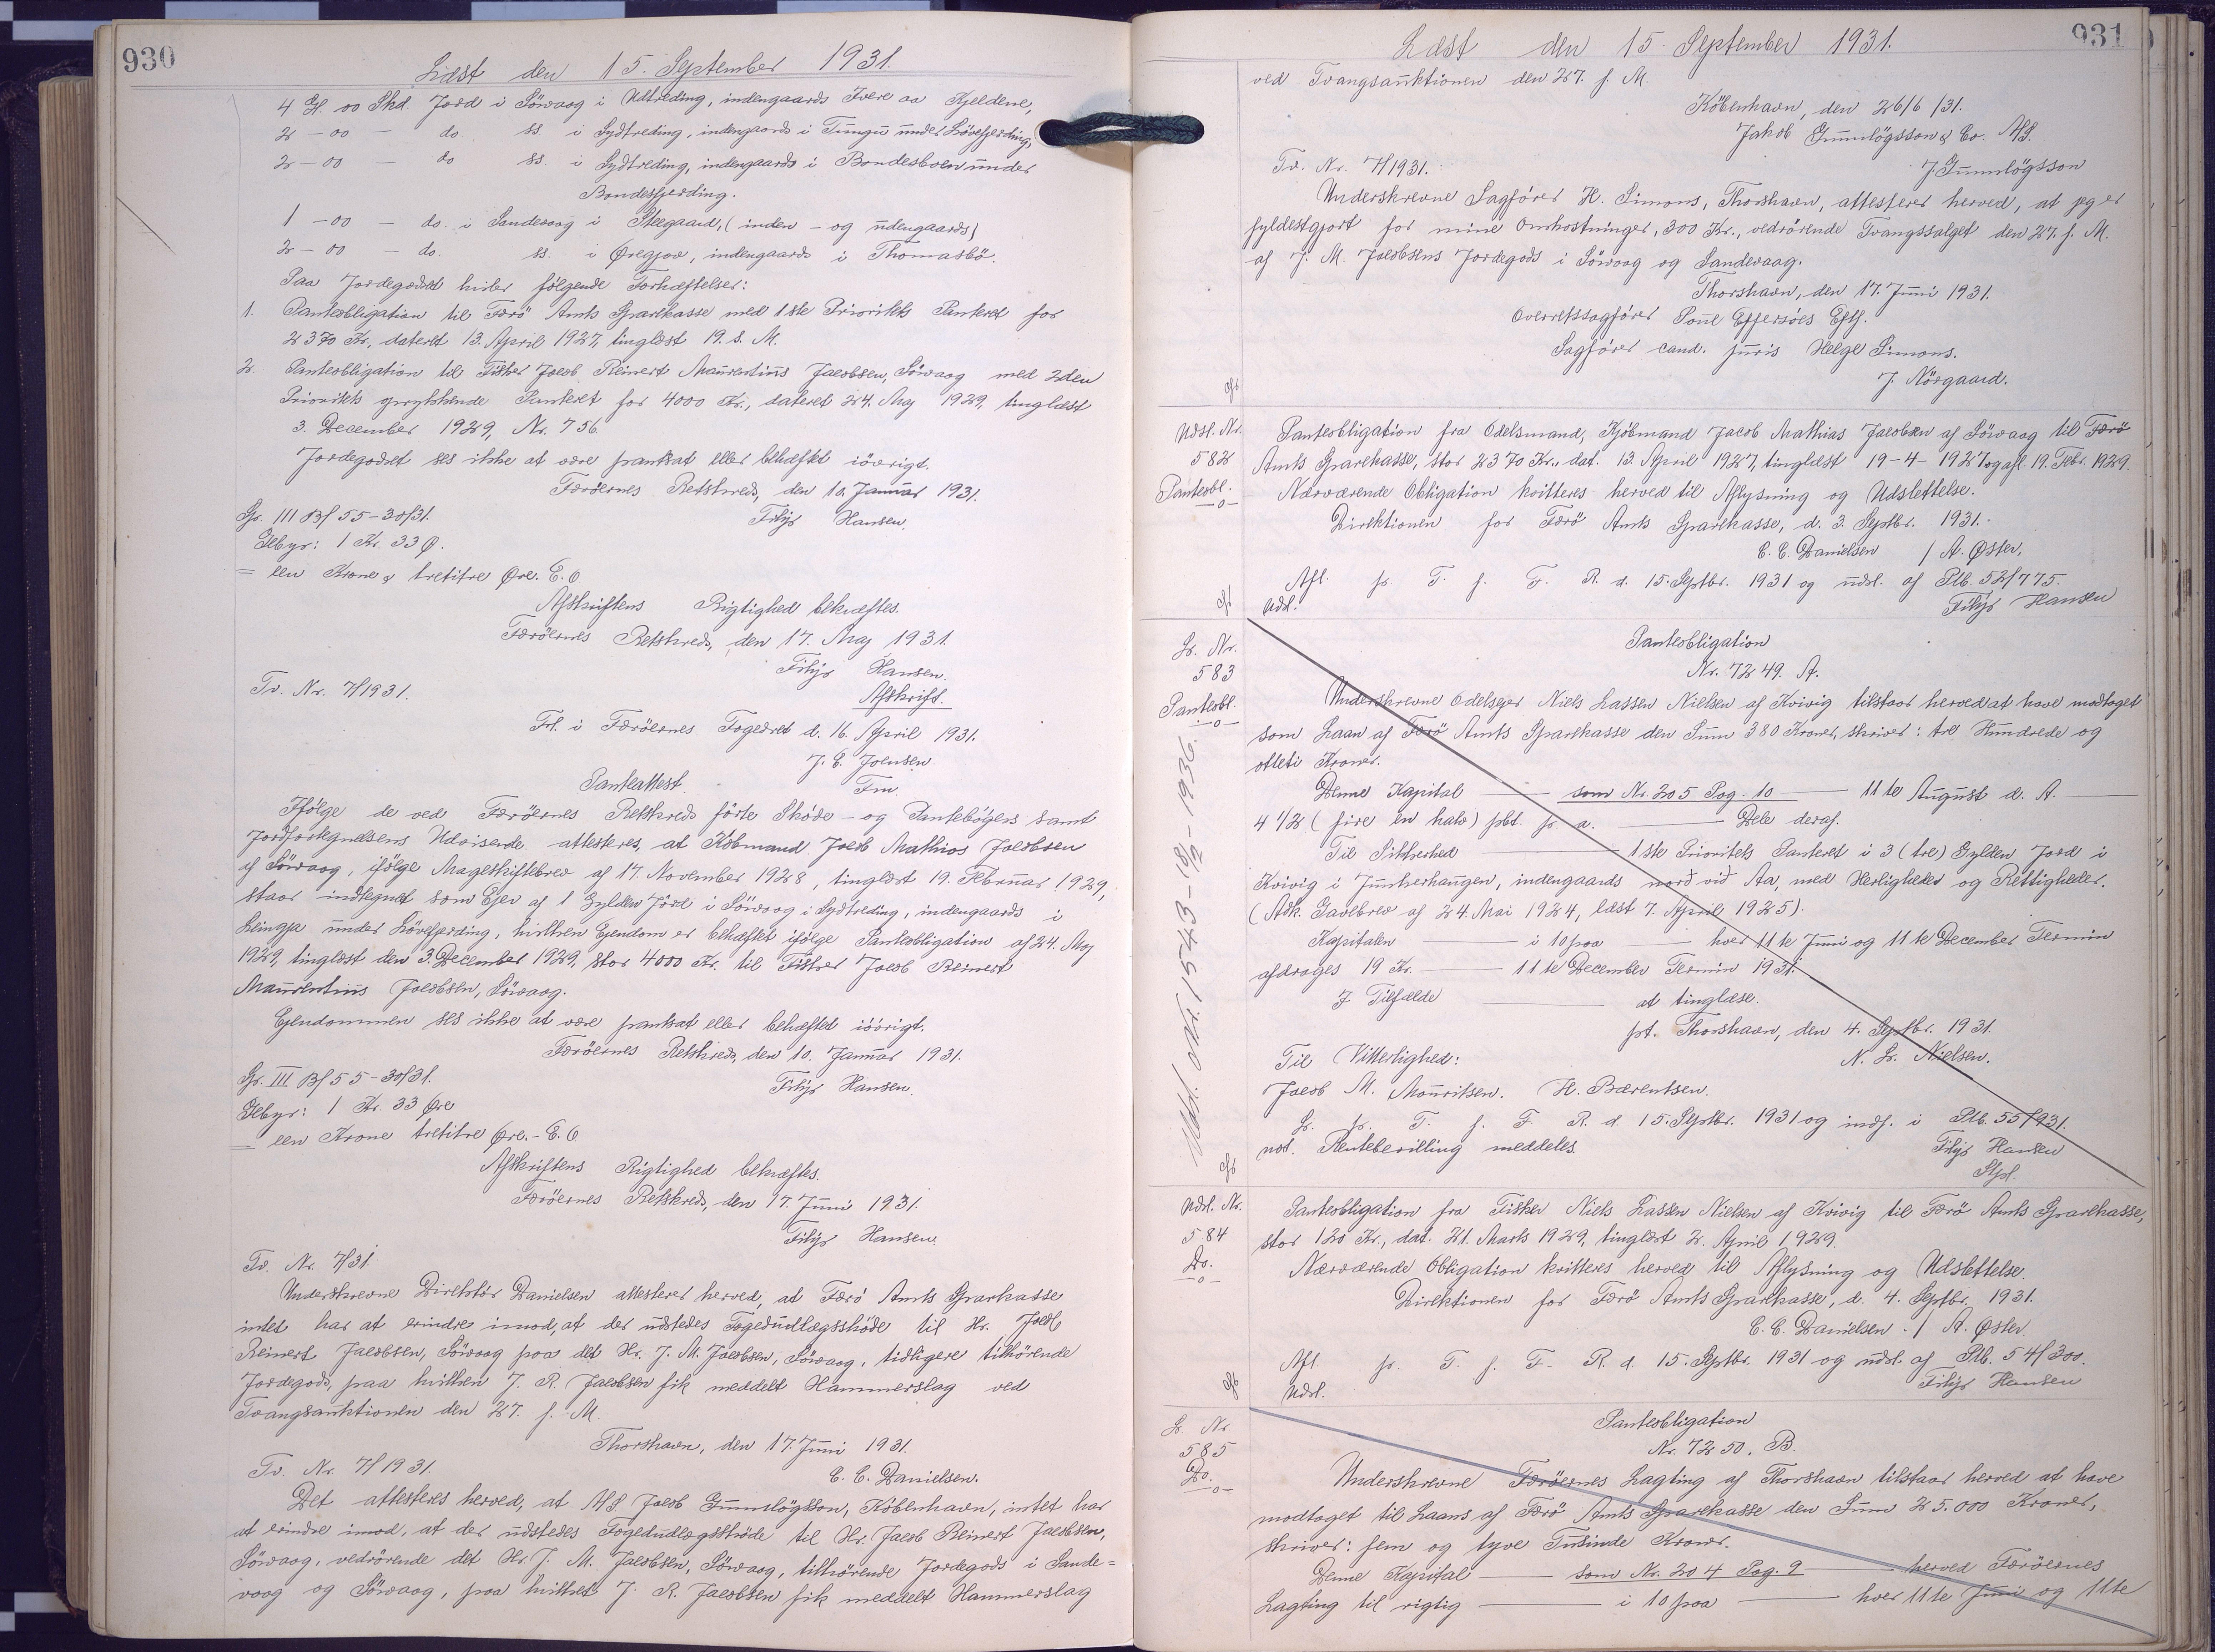 930
Læst den 15. September 1931.
4 Gl. 00 Skd. Jord i Sörvaag i Udtreding, indengaards Tvere aa Kjeldene,
2 - 00 - do. ss. i Sydtreding, indengaards i Tungu under Lövefjerding,
2 - 00 - do ss. i Sydtreding, indengaards i Bondesboen under
Bondesfjerding.
1 - 00 - do. i Sandevaag i Steegaard, (inden - og udengaards)
2 - 00 - do. ss. i Øregjov, indengaards i Thomasbö.
Paa Jordegodset hviler fölgende Forhæftelser:
1. Panteobligation til Færö Amts Sparekasse med 1ste Prioritets Panteret for
2370 Kr., dateret 13. April 1927, tinglæst 19. s. M.
2. Panteobligation til Fisker Jacob Reinert Maurentius Jacobsen, Sörvaag med 2den
Prioritets oprykkende Panteret for 4000 Kr., dateret 24. Maj 1929, tinglæst
3. December 1929, Nr. 756.
Jordegodset ses ikke at være pantsat eller behæftet iövrigt.
Færöernes Retskreds, den 10. Januar 1931.
Gr. III Bf 55-30/31. Filip Hansen.
Gebyr: 1 Kr. 33 Ø.
= een Krone & tretitre Øre. E.O
Afskriftens Rigtighed bekræftes.
Færöernes Retskreds, den 17. Maj 1931.
Filip Hansen.
Tv. Nr. 7/1931. Afskrift.
Frl. i Færöernes Fogedret d. 16. April 1931.
J. C. Joensen.
Fm.
Panteattest.
Ifölge de ved Færöernes Retskreds förte Sköde- og Pantebögers samt
Jordfortegnelsens Udvisende attesteres, at Köbmand Jacob Mathias Jacobsen
af Sörvaag, ifölge Mageskiftebrev af 17. November 1928, tinglæst 19. Februar 1929,
staar indtegnet som Ejer af 1 Gylden Jord i Sörvaag i Sydtreding, indengaards i
Leingja under Lövefjerding, hvilken Ejendom er behæftet ifölge Panteobligation af 24. Maj
1929, tinglæst den 3. December 1929, stor 4000 Kr. til Fisker Jacob Reinert
Maurentius Jacobsen, Sörvaag.
Ejendommen ses ikke at være pantsat eller behæftet iövrigt.
Færöernes Retskreds, den 10. Januar 1931.
Gr. III Bf 55-30/31. Filip Hansen.
Gebyr: 1 Kr. 33 Øre
= een Krone tretitre Øre.- E.O
Afskriftens Rigtighed bekræftes.
Færöernes Retskreds, den 17. Juni 1931.
Filip Hansen.
Tv. Nr. 7/31.
Underskrevne Direktör Danielsen attesterer herved, at Færö Amts Sparekasse
intet har at erindre imod, at der udstedes Fogedudlægsskøde til Hr. Jacob
Reinert Jacobsen, Sörvaag paa det Hr. J. M. Jacobsen, Sörvaag, tidligere tilhörende
Jordegods, paa hvilken J. R. Jacobsen fik meddelt Hammerslag ved
Tvangsauktionen den 27. f. M.
Thorshavn, den 17. Juni 1931.
Tv. Nr. 7/1931. C. C. Danielsen.
Det attesteres herved, at A/S Jacob Gunnlögsson, Köbenhavn, intet har
at erindre imod, at der udstedes Fogedudlægsskøde til Hr. Jacob Reinert Jacobsen,
Sörvaag, vedrörende det Hr. J. M. Jacobsen, Sörvaag, tilhörende Jordegods i Sande=
vaag og Sörvaag, paa hvilket J. R. Jacobsen fik meddelt Hammerslag
931
Læst den 15. September 1931.
ved Tvangsauktionen den 27. f. M.
Köbenhavn, den 26/6 /31.
Jakob Gunnlögsson & Co. A/S.
Tv. Nr. 7/1931. J. Gunnlögsson
Underskrevne Sagförer H. Simons, Thorshavn, attesterer herved, at jeg er
fyldestgjort for mine Omkostninger, 300 Kr., vedrörende Tvangssalget den 27. f. M.
af J. M. Jacobsens Jordegods i Sörvaag og Sandevaag.
Thorshavn, den 17. Juni 1931.
Overretssagförer Poul Effersöes Eftf.
Sagförer cand. juris Helge Simons.
J. Nörgaard.
Udsl. Nr.
582
Panteobl.
-o-
Panteobligation fra Odelsmand, Kjöbmand Jacob Mathias Jacobsen af Sörvaag til Færö
Amts Sparekasse, stor 2370 Kr., dat. 13. April 1927, tinglæst 19-4-1927 og afl. 19. Febr. 1929.
Nærværende Obligation kvitteres herved til Aflysning og Udslettelse.
Direktionen for Færö Amts Sparekasse, d. 3. Septbr. 1931.-
C. C. Danielsen / A. Øster.
Afl. pr. T. f. F. R. d. 15. Septbr. 1931 og udsl. af Ptb. 52/775.
Udsl. Filip Hansen
Lr. Nr.
583
Panteobl.
-o-
Panteobligation
Nr. 7249. A.
Underskrevne Odelsejer Niels Lassen Nielsen af Kvivig tilstaar herved at have modtaget
som Laan af Færö Amts Sparekasse den Sum 380 Kroner, skriver: tre Hundrede og
otteti Kroner.
Denne Kapital — som Nr. 205 Pag. 10 — 11te August d. A.
4 1/2 (fire en halv) pCt. p. a. — Dele deraf.
Til Sikkerhed — 1ste Prioritets Panteret i 3 (tre) Gylden Jord i
Kvivig i Junkerhaugen, indengaards norð við Aa, med Herligheder og Rettigheder.
(Adk. Gavebrev af 24. Mai 1924, læst 7. April 1925).
Kapitalen — i 10 paa — hver 11te Juni og 11te December Termin
afdrages 19 Kr. — 11te December Termin 1931.
I Tilfælde — at tinglæse.
pt. Thorshavn, den 4. Septbr. 1931.
Til Vitterlighed: N. L. Nielsen.
Jacob M. Mouritsen. H. Bærentsen.
Lr. pr. T. f. F. R. d. 15. Septbr. 1931 og indf. i Ptb. 55/931.
not. Rentebevilling meddeles. Filip Hansen
Stpl.
Udsl. Nr.
584
Do.
-o-
Panteobligation fra Fisker Niels Lassen Nielsen af Kvivig til Færö Amts Sparekasse,
stor 120 Kr., dat. 21. Marts 1929, tinglæst 2. April 1929.
Nærværende Obligation kvitteres herved til Aflysning og Udslettelse.
Direktionen for Færö Amts Sparekasse, d. 4. Septbr. 1931.
C. C. Danielsen. / A. Øster
Afl. pr. T. f. F. R. d. 15. Septbr. 1931 og udsl. af Ptb. 54/300.
Udsl. Filip Hansen
L. Nr
585
Do.
-o-
Panteobligation
Nr. 7250. B.
Underskrevne Færöernes Lagting af Thorshavn tilstaar herved at have
modtaget til Laans af Færö Amts Sparekasse den Sum 25.000 Kroner,
skriver: fem og tyve Tusinde Kroner.
Denne Kapital — som Nr. 204 Pag. 9 — herved Færöernes
Lagting til rigtig — i 10 paa — hver 11te Juni og 11te